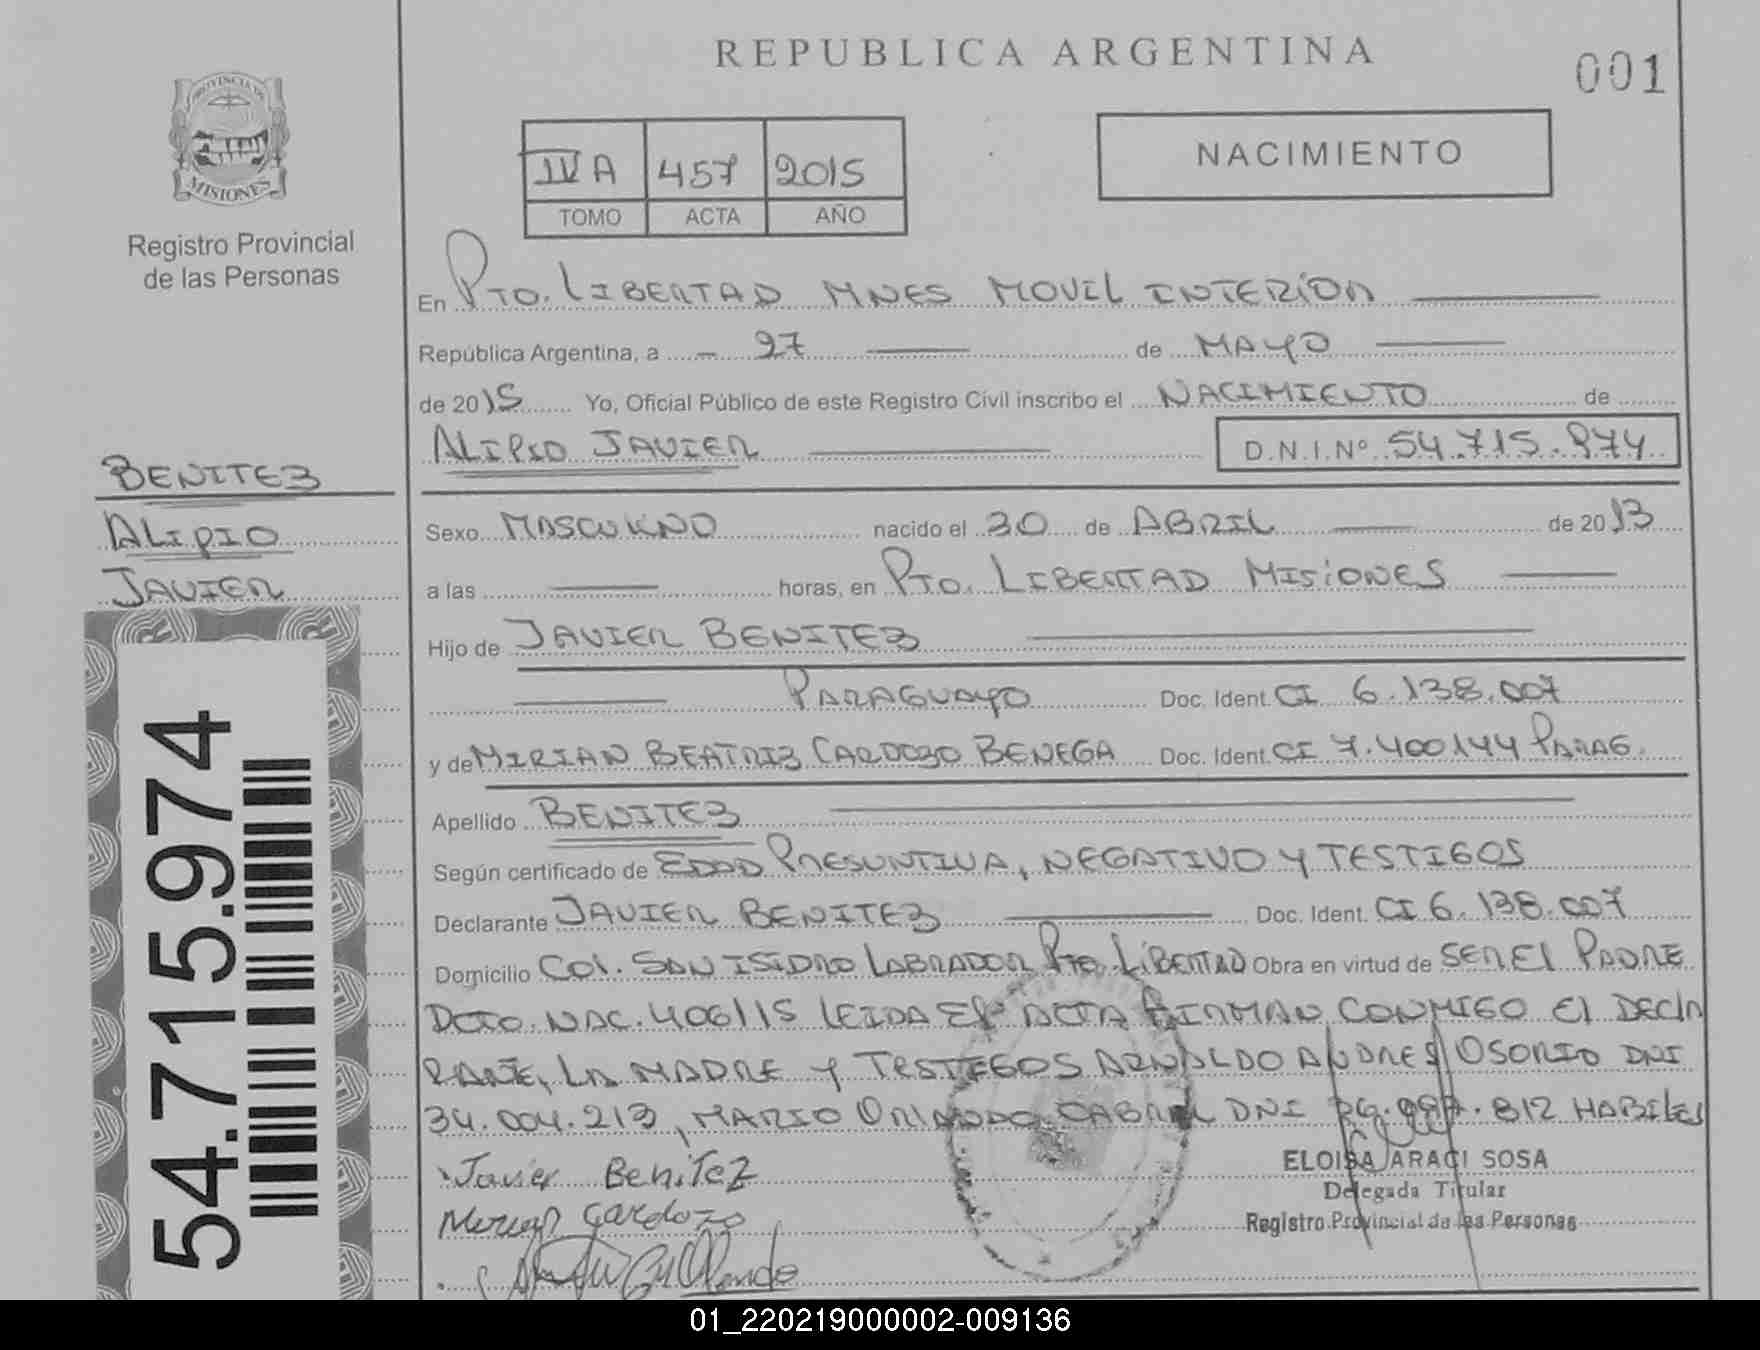 REPUBLICA ARGENTINA
001
PROVINCIA DE
MISIONES
Registro Provincial
de las Personas
IV A 457 2015
TOMO ACTA AÑO
NACIMIENTO
En PTO. LIBERTAD MNES MOVIL INTERIOR
República Argentina, a 27 de MAYO
de 2015 Yo, Oficial Público de este Registro Civil inscribo el NACIMIENTO de
ALIPIO JAVIER D.N.I.Nº 54.715.974
BENITEZ
ALIPIO
JAVIER
54.715.974
Sexo MASCULINO nacido el 30 de ABRIL de 2013
a las horas, en PTO. LIBERTAD MISIONES
Hijo de JAVIER BENITEZ
PARAGUAYO Doc. Ident. CI 6.138.007
y de MIRIAN BEATRIZ CARDOZO BENEGA Doc. Ident. CI 7.400144 PARAG.
Apellido BENITEZ
Según certificado de EDAD PRESUNTIVA, NEGATIVO Y TESTIGOS
Declarante JAVIER BENITEZ Doc. Ident. CI 6.138.007
Domicilio COL. SAN ISIDRO LABRADOR PTO. LIBERTAD Obra en virtud de SER EL PADRE
DCTO. NAC. 406/15 LEIDA EL ACTA FIRMAN CONMIGO EL DECLA
RANTE, LA MADRE Y TESTIGOS ARNALDO ANDRES OSORIO DNI
34.004.213, MARIO ORLANDO CABRAL DNI HABILES
Javier Benitez
Cardozo
ELOISA ARACI SOSA
Delegada Titular
Registro Provincial de las Personas
01_220219000002-009136